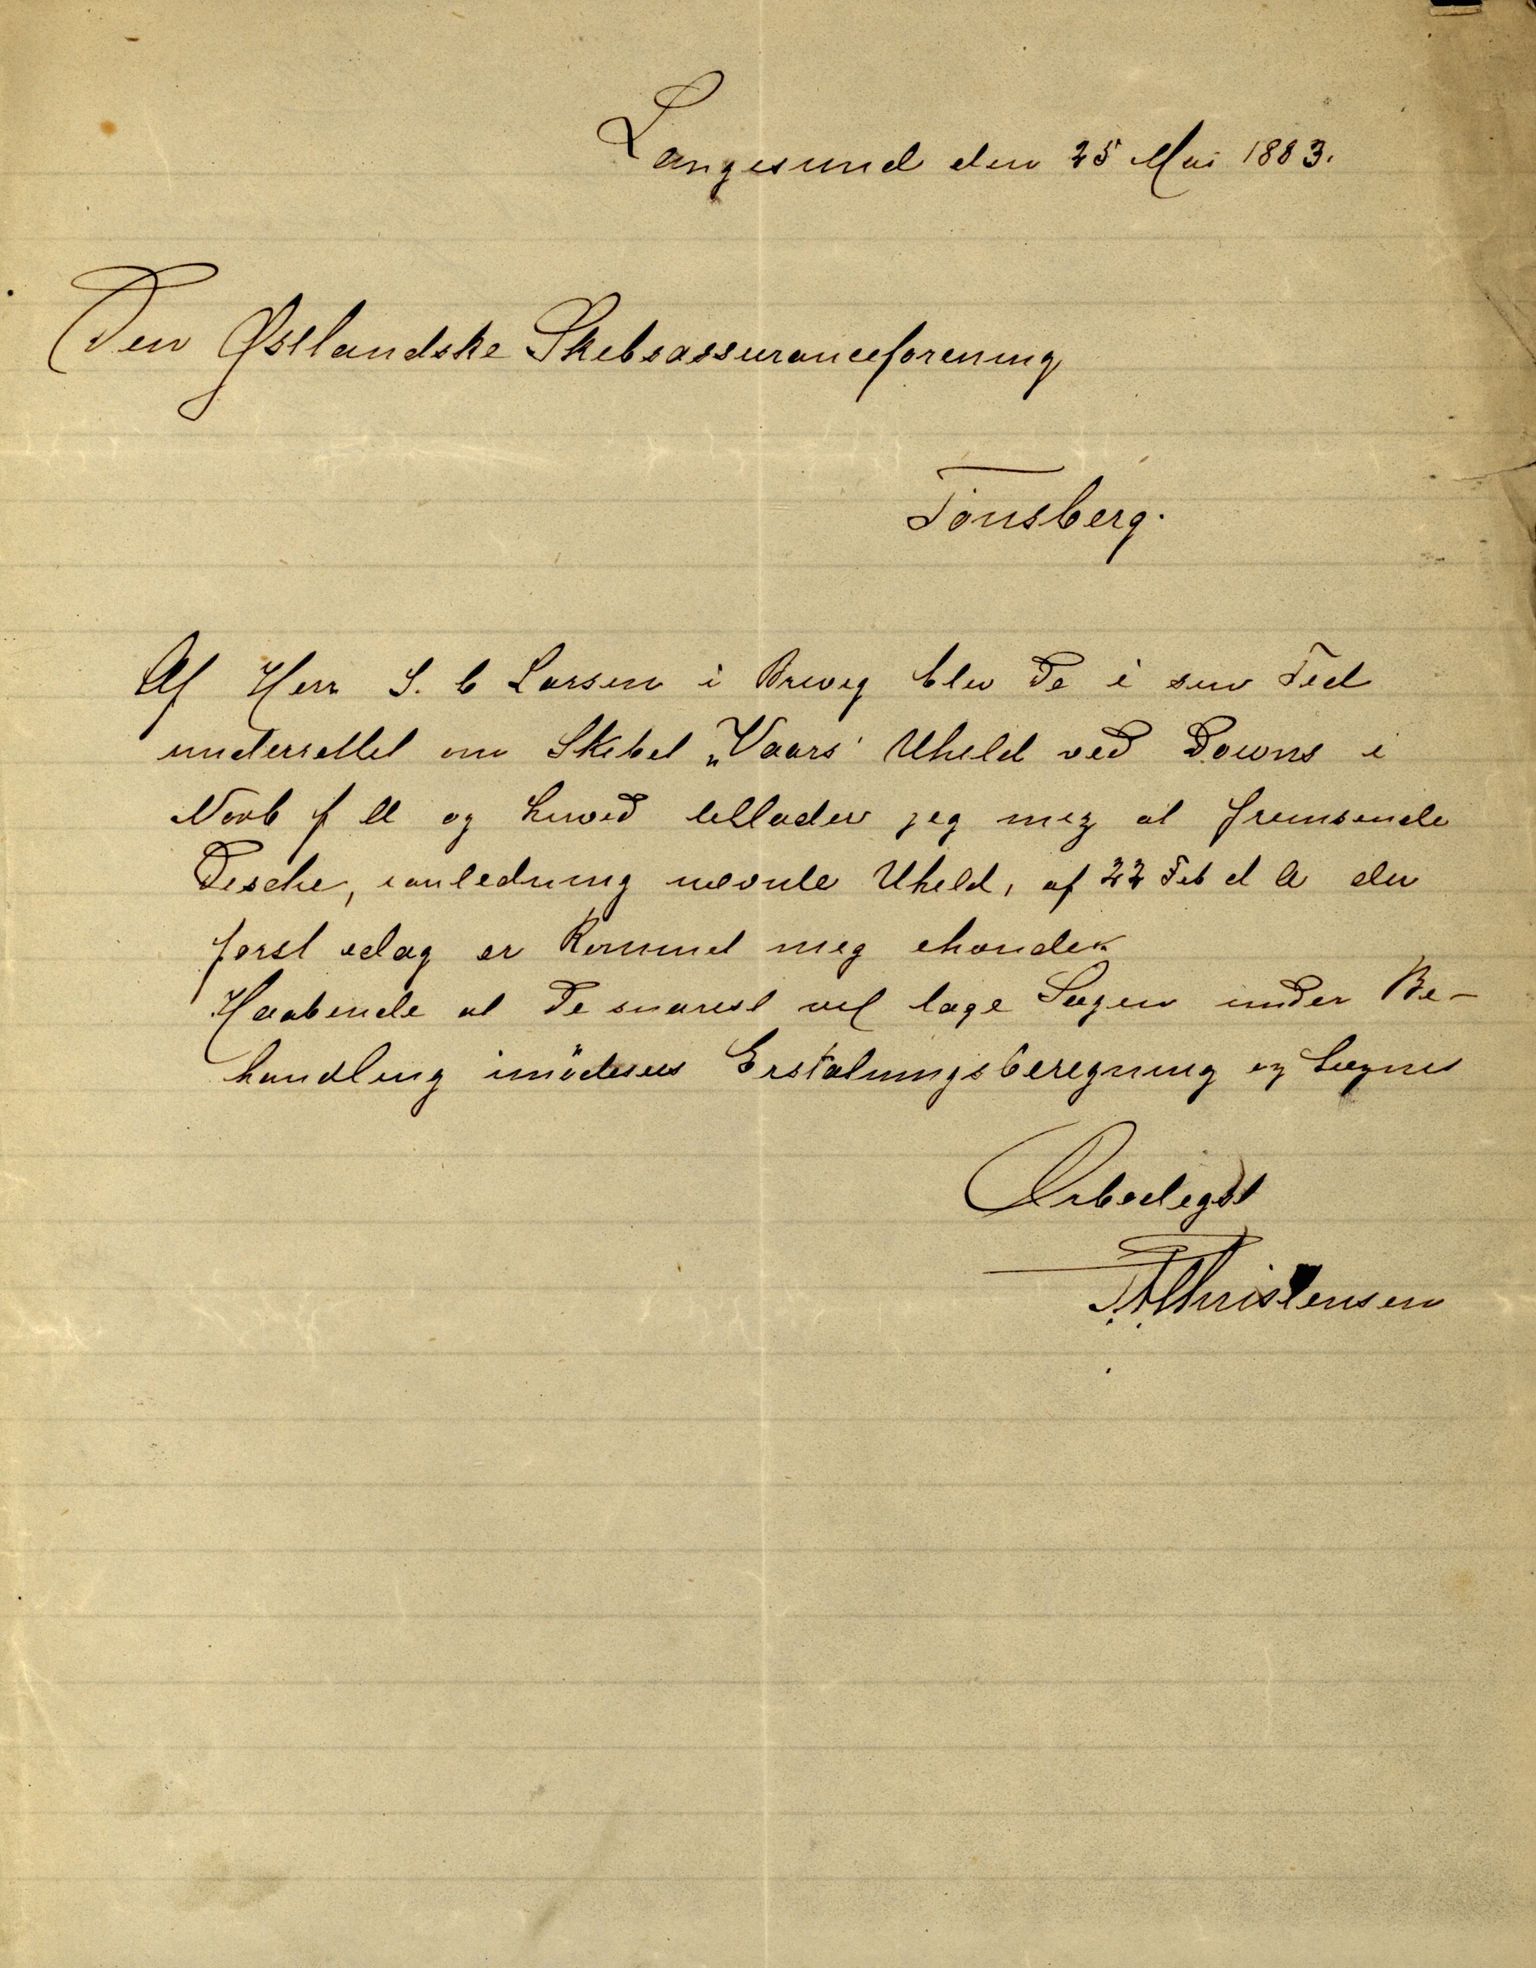 Langesund den 25 Mai 1883.
Den Østlandske Skibsassuranceforening
Tönsberg.
Af Herr S. C Larsen i Brevig blev De i sin Tid
underrettet om Skibet „Vaars" Uheld ved Downs i
Novb f A og herved tillader jeg mig at fremsende
Desche, ianledning nævnte Uheld, af 22 Feb d A der
först idag er kommet mig ihænde.
Haabende at De snarest vil tage Sagen under Be-
handling imödesees Erstatningsberegning og tegner
Ærbødigst
T. A. Christensen